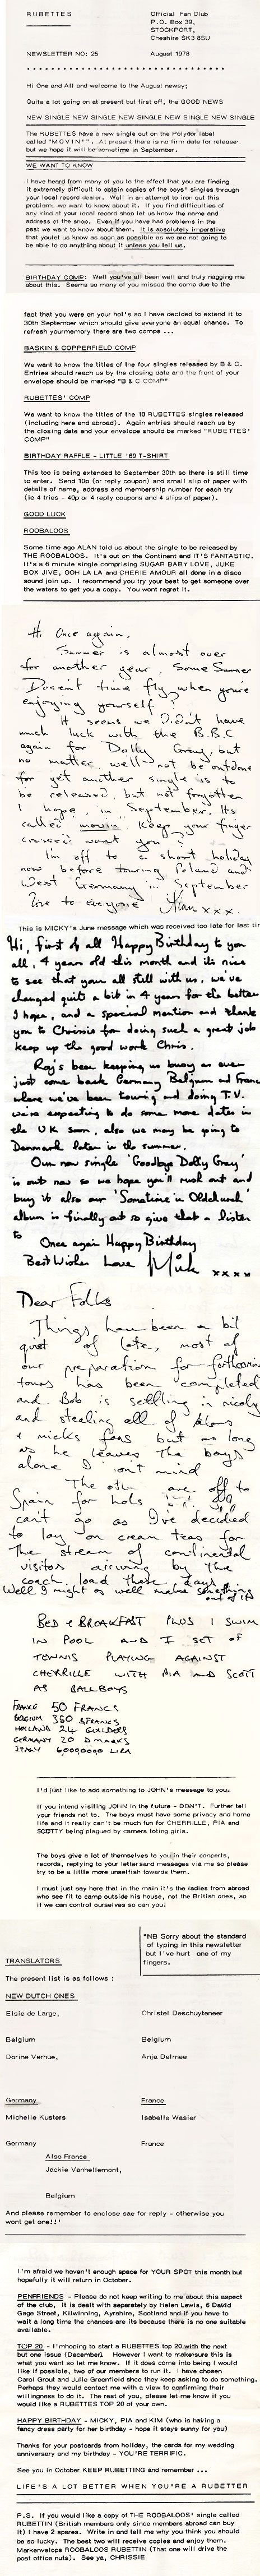 RUBETTES
Official Fan Club
P.O. Box 39,
STOCKPORT,
Cheshire SK3 8SU
NEWSLETTER NO: 25
August 1978
Hi One and All and welcome to the August newsy;
Quite a lot going on at present but first off, the GOOD NEWS
NEW SINGLE NEW SINGLE NEW SINGLE NEW SINGLE NEW SINGLE
The RUBETTES have a new single out on the Polydor label
called "MOVIN'". At present there is no firm date for release
but we hope it will be sometime in September.
WE WANT TO KNOW
I have heard from many of you to the effect that you are finding
it extremely difficult to obtain copies of the boys' singles through
your local record dealer. Well in an attempt to iron out this
problem, we want to know about it. If you find difficulties of
any kind at your local record shop let us know the name and
address of the shop. Even if you have had problems in the
past we want to know about them. It is absolutely imperative
that you let us know as soon as possible as we are not going to
be able to do anything about it unless you tell us.
BIRTHDAY COMP: Well you've all been well and truly nagging me
about this. Seems so many of you missed the comp due to the
fact that you were on your hol's so I have decided to extend it to
30th September which should give everyone an equal chance. To
refresh yourmemory there are two comps ...
BASKIN & COPPERFIELD COMP
We want to know the titles of the four singles released by B & C.
Entries should reach us by the closing date and the front of your
envelope should be marked "B & C COMP"
RUBETTES' COMP
We want to know the titles of the 18 RUBETTES singles released
(including here and abroad). Again entries should reach us by
the closing date and your envelope should be marked "RUBETTES'
COMP"
BIRTHDAY RAFFLE - LITTLE '69 T-SHIRT
This too is being extended to September 30th so there is still time
to enter. Send 10p (or reply coupon) and small slip of paper with
details of name, address and member number for each try
(ie 4 tries - 40p or 4 reply coupons and 4 slips of paper).
GOOD LUCK
ROOBALOOS
Some time ago ALAN told us about the single to be released by
THE ROOBALOOS. It's out on the Continent and IT'S FANTASTIC.
It's a 6 minute single comprising SUGAR BABY LOVE, JUKE
BOX JIVE, OOH LA LA and CHERIE AMOUR all done in a disco
sound join up. I recommend you try your best to get someone over
the waters to get you a copy. You wont regret it.
Hi Once again,
Summer is almost over
for another year, Some Summer
Doesn't time fly when youre
enjoying yourself?
It seems we didn't have
much luck with the B.B.C
again for Dolly Gray, but
no matter, we'll not be outdone
for yet another single is to
be released, but not forgotten
I hope, in September. Its
called "movin" keep your fingers
crossed wont you?
I'm off to a short holiday
now before touring Poland and
West Germany in September
Love to everyone Alan xxx.
This is MICKY's June message which was received too late for last tim
Hi, first of all Happy Birthday to you
all, 4 years old this month and its nice
to see that your all still with us, we've
changed quite a bit in 4 years for the better
I hope, and a special mention and thank
you to Chrissie for doing such a great job
keep up the good work Chris.
Roy's been keeping us busy as ever
just come back Germany Belgium and France
where we've been touring and doing T.V.
we're expecting to do some more dates in
the UK soon, also we may be going to
Denmark later in the summer.
Our new single 'Goodbye Dolly Gray'
is out now so we hope you'll rush out and
buy it also our 'Sometime in Oldchurch'
album is finally out so give that a listen
to
Once again Happy Birthday
Best Wishes Love Mick xxxx
Dear Folks
Things have been a bit
quiet of late, most of
our preparation for forthcoming
tours has been completed
and Bob is settling in nicely
and stealing all of Alans
& micks fans but as long
as he leaves the boys
alone I don't mind
The others are off to
Spain for hols
can't go as I've decided
to lay on cream teas for
the stream of continental
visitors arriving by the
coach load these days
Well I might as well make something
out of it
BED & BREAKFAST PLUS 1 SWIM
IN POOL AND 1 SET OF
TENNIS PLAYING AGAINST
CHERRILLE WITH PIA AND SCOTT
AS BALL BOYS
FRANCE 50 FRANCS
BELGIUM 350 FRANCS
HOLLAND 24 GUILDERS
GERMANY 20 DMARKS
ITALY 6000000 LIRA
I'd just like to add something to JOHN's message to you.
If you intend visiting JOHN in the future - DON'T. Further tell
your friends not to. The boys must have some privacy and home
life and it really can't be much fun for CHERRILLE, PIA and
SCOTTY being plagued by camera toting girls.
The boys give a lot of themselves to you in their concerts,
records, replying to your letters and messages via me so please
try to be a little more unselfish towards them.
I must just say here that in the main it's the ladies from abroad
who see fit to camp outside his house, not the British ones, so
if we can control ourselves so can you!
*NB Sorry about the standard
of typing in this newsletter
but I've hurt one of my
fingers.
TRANSLATORS
The present list is as follows :
NEW DUTCH ONES
Elsie de Large,
Christel Deschuyteneer
Belgium
Belgium
Dorine Verhue,
Anja Delmee
Germany
France
Michelle Kusters
Isabelle Wasier
Germany
France
Also France
Jackie Vanhellemont,
Belgium
And please remember to enclose sae for reply - otherwise you
wont get one!!'
I'm afraid we haven't enough space for YOUR SPOT this month but
hopefully it will return in October.
PENFRIENDS - Please do not keep writing to me about this aspect
of the club, it is dealt with seperately by Helen Lewis, 6 David
Gage Street, Kilwinning, Ayrshire, Scotland and if you have to
wait a long time the chances are its because there is no one suitable
available.
TOP 20 - I'mhoping to start a RUBETTES top 20 with the next
but one issue (December). However I want to makesure this is
what you want so let me know. If it does come into being I would
like if possible, two of our members to run it. I have chosen
Carol Groat and Julie Greenfield since they keep asking to do something.
Perhaps they would contact me with a view to confirming their
willingness to do it. The rest of you, please let me know if you
would like a RUBETTES TOP 20 of your own.
HAPPY BIRTHDAY - MICKY, PIA and KIM (who is having a
fancy dress party for her birthday - hope it stays sunny for you)
Thanks for your postcards from holiday, the cards for my wedding
anniversary and my birthday - YOU'RE TERRIFIC.
See you in October KEEP RUBETTING and remember ...
LIFE'S A LOT BETTER WHEN YOU'RE A RUBETTER
P.S. If you would like a copy of THE ROOBALOOS' single called
RUBETTIN (British members only since members abroad can buy
it) I have 2 spares. Write in and tell me why you think you should
be so lucky. The best two will receive copies and enjoy them.
Markenvelops ROOBALOOS RUBETTIN (That one will drive the
post office nuts). See ya, CHRISSIE